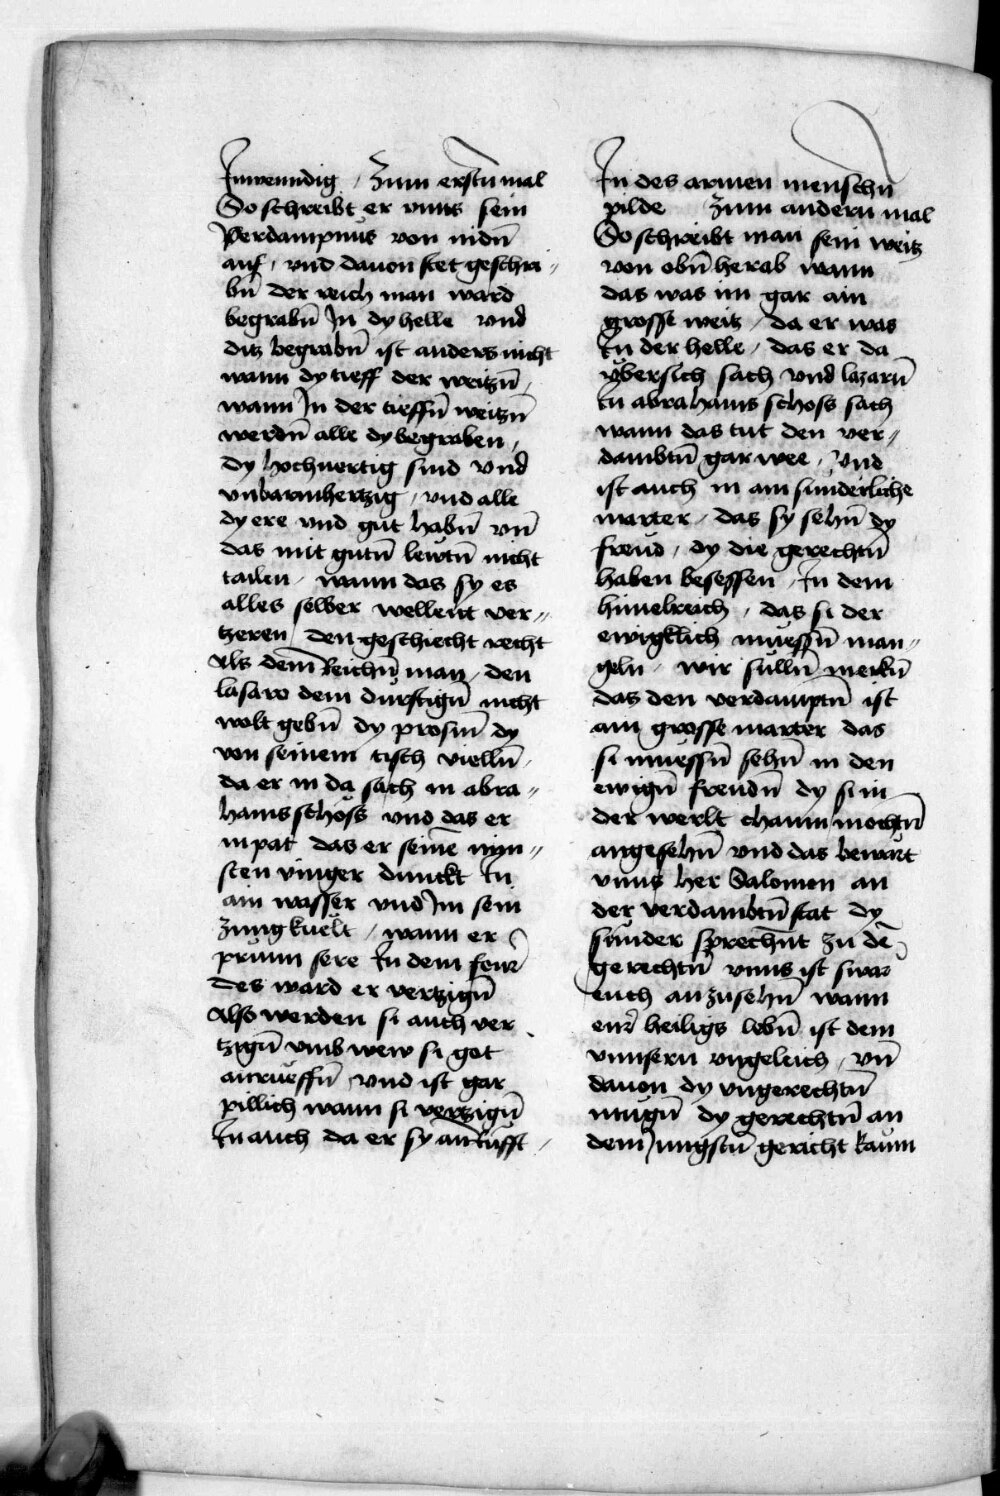 Inwenndig / Zum erstn̄ mal
So schreibt er vnns sein
Verdampnus von nidn̄
auf / vnd dauon stet geschri⸗
bn̄ der reich man ward
begrabn̄ In dy helle vnd
ditz begrabn̄ ist anders nicht
wann dy tieff der weitzn̄ /
wann In der tieffn̄ weitzn̄
werdn̄ alle dy begraben /
dy hochuertig sind vnd
vnbarmhertzig / vnd alle
dy ere vnd gut habn̄ vn̄
das mit gutn̄ lewtn̄ nicht
tailen / wann das sy es
alles selber wellent ver⸗
tzeren / den geschiecht recht
Als dem Reichn̄ man / den
lasaro dem durftign̄ nicht
wolt gebn̄ dy prosm̄ dy
von seinem tisch vielln̄ /
da er in da sach in abra⸗
hams schoss vnd das er
in pat das er seinē myn⸗
sten vinger dunckt In
ain wasser vnd Im sein
zung kuelt / wann er
prunn sere In dem feur̄
des ward er vertzign̄
Also werden si auch ver
tzign̄ vmb wew si got
anrueffn̄ / vnd ist gar
pillich wann si vertzign̄
In auch da er sy anrufft /
In des armen menschn̄
pilde Zum andern mal
So schreibt man sein weitz
von obn̄ herab wann
das was im gar ain
grosse weitz / da er was
In der helle / das er da
vbersich sach vnd lazarn̄
In abrahams schoss sach
wann das tut den ver⸗
dambtn̄ gar wee / vnd
ist auch in ain sunderliche
marter / das sy sehn̄ dy
freud / dy die gerechtn̄
haben besessen / In dem
himelreich / das si der
ewigklich muessn̄ man⸗
geln / wir sulln̄ merkn̄
das den verdamptn̄ ist
ain grosse marter das
si muessn̄ sehn̄ in den
ewign̄ freudn̄ dy si in
der werlt chaum mochtn̄
angesehn̄ vnd das bewart
vnns her Salomon an
der verdambtn̄ stat dy
sunder sprechn̄t zu dē
gerechtn̄ vnns ist swar
euch anzusehn̄ wann
eur̄ heiligs lebn̄ ist dem
vnnsern vngeleich / vn̄
dauon dy vngerechtn̄
mugn̄ dy gerechtn̄ an
dem Jungstn̄ gericht kaum